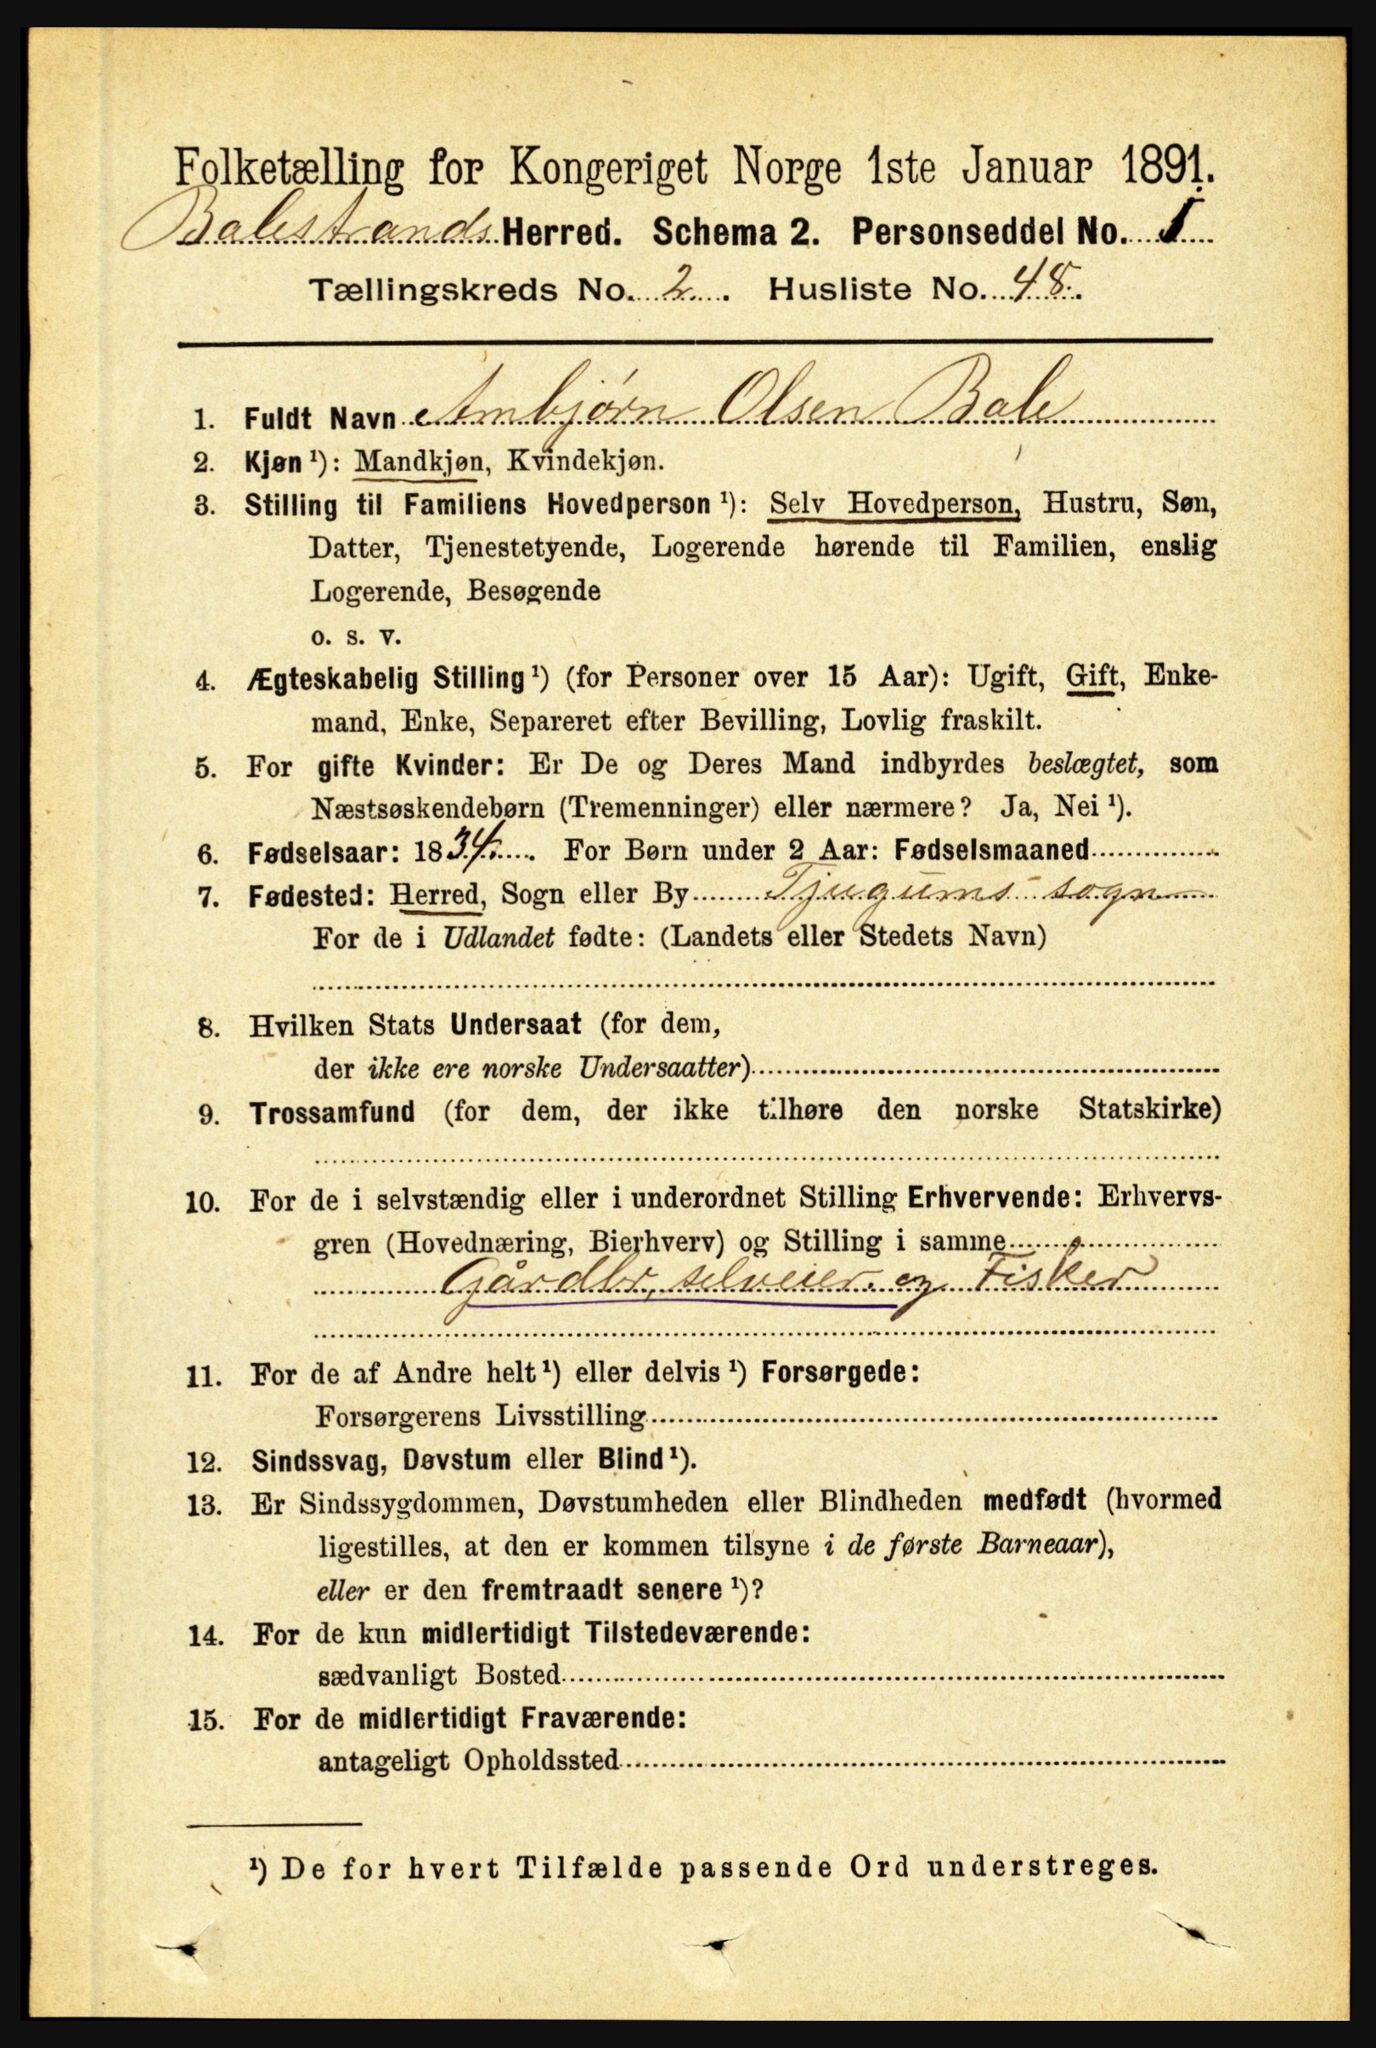 Folketælling for Kongeriget Norge 1ste Januar 1891.
Balestrands Herred. Schema 2. Personseddel No. 1
Tællingskreds No. 2. Husliste No. 48.
1. Fuldt Navn Ambjørn Olsen Bale
2. Kjøn ¹): Mandkjøn, Kvindekjøn.
3. Stilling til Familiens Hovedperson ¹): Selv Hovedperson, Hustru, Søn,
Datter, Tjenestetyende, Logerende hørende til Familien, enslig
Logerende, Besøgende
o. s. v.
4. Ægteskabelig Stilling ¹) (for Personer over 15 Aar): Ugift, Gift, Enke-
mand, Enke, Separeret efter Bevilling, Lovlig fraskilt.
5. For gifte Kvinder: Er De og Deres Mand indbyrdes beslægtet, som
Næstsøskendebørn (Tremenninger) eller nærmere? Ja, Nei ¹).
6. Fødselsaar: 1834. For Børn under 2 Aar: Fødselsmaaned
7. Fødested: Herred, Sogn eller By Tjugums sogn
For de i Udlandet fødte: (Landets eller Stedets Navn)
8. Hvilken Stats Undersaat (for dem,
der ikke ere norske Undersaatter)
9. Trossamfund (for dem, der ikke tilhøre den norske Statskirke)
10. For de i selvstændig eller i underordnet Stilling Erhvervende: Erhvervs-
gren (Hovednæring, Bierhverv) og Stilling i samme
Gårdbr, selveier. og Fisker
11. For de af Andre helt ¹) eller delvis ¹) Forsørgede:
Forsørgerens Livsstilling
12. Sindssvag, Døvstum eller Blind ¹).
13. Er Sindssygdommen, Døvstumheden eller Blindheden medfødt (hvormed
ligestilles, at den er kommen tilsyne i de første Barneaar),
eller er den fremtraadt senere ¹)?
14. For de kun midlertidigt Tilstedeværende:
sædvanligt Bosted
15. For de midlertidigt Fraværende:
antageligt Opholdssted
¹) De for hvert Tilfælde passende Ord understreges.